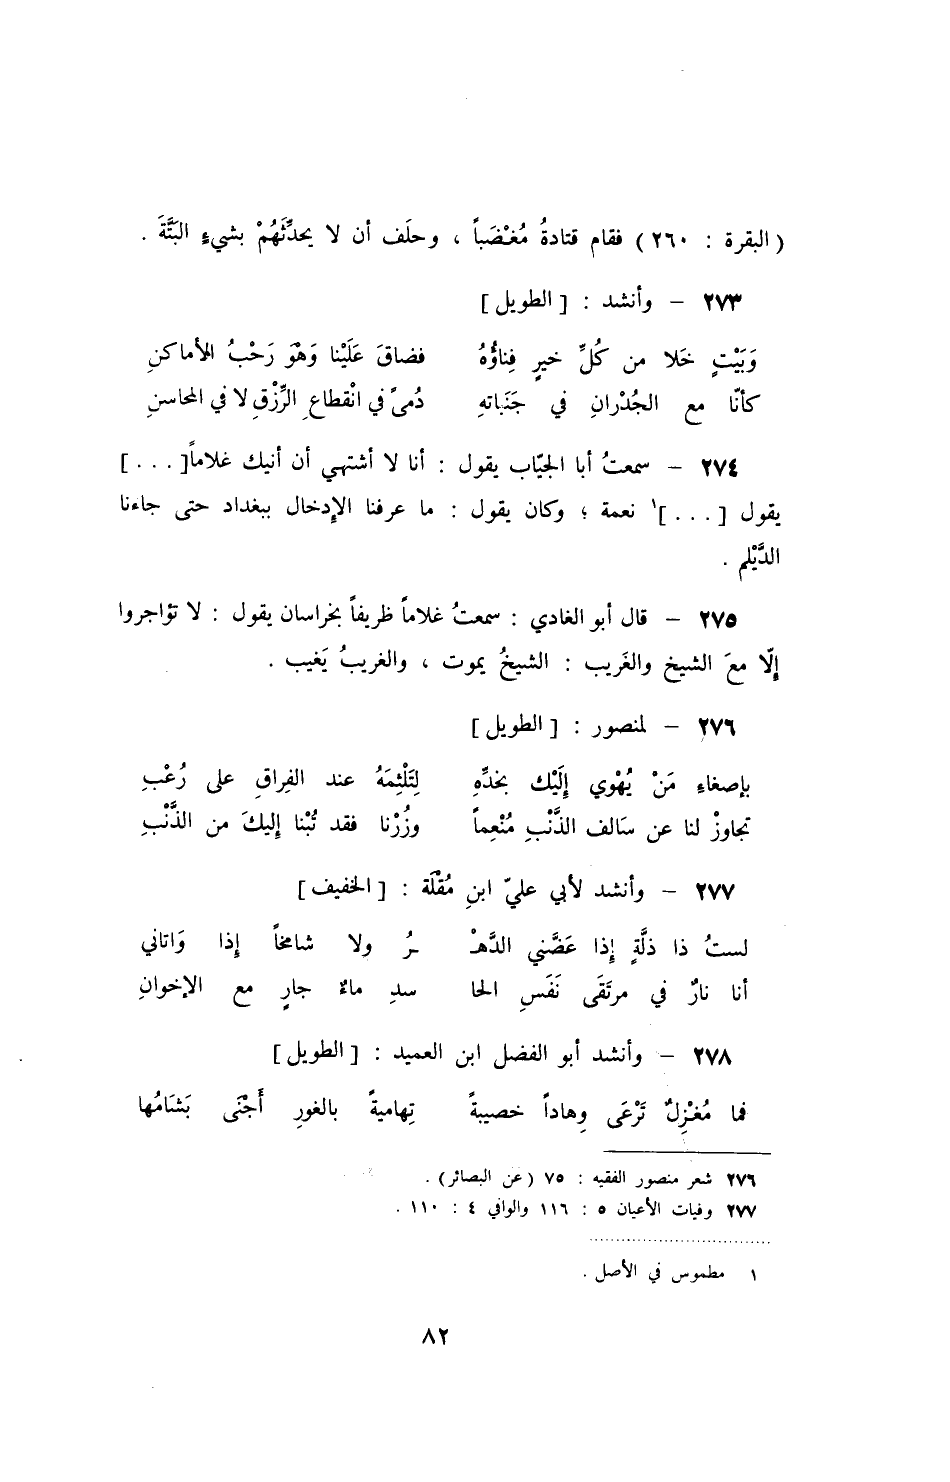 ( البقرة : ٢٦٠ ) فقام قتادةُ مُغْضَباً ، وحلَف أن لا يحدِّثَهُمْ بشيءٍ البَتَّةَ .
٢٧٣ – وأنشد : [ الطويل ]
وَبَيْتٍ خَلا من كُلِّ خيرٍ فِناؤُهُ فضاقَ عَلَيْنا وَهْوَ رَحْبُ الأماكنِ
كأنّا مع الجُدْرانِ في جَنَباتهِ دُمىً في انْقطاعِ الرِّزْقِ لا في المحاسنِ
٢٧٤ – سمعتُ أبا الجيّاب يقول : أنا لا أشتهي أن أنيك غلاماً [ . . . ]
يقول [ . . . ]١ نعمة ؛ وكان يقول : ما عرفنا الإدخال ببغداد حتى جاءنا
الدَّيْلم .
٢٧٥ – قال أبو الغادي : سمعتُ غلاماً ظريفاً بخراسان يقول : لا تؤاجروا
إلّا معَ الشيخ والغَريب : الشيخُ يموت ، والغريبُ يَغيب .
٢٧٦ – لمنصور : [ الطويل ]
بإصغاءِ مَنْ يُهْوي إلَيْك بخدِّهِ لِتَلْثِمَهُ عند الفِراقِ على رُعْبِ
تجاوزْ لنا عن سَالف الذَّنْبِ مُنْعِماً وزُرْنا فقد تُبْنا إليكَ من الذَّنْبِ
٢٧٧ – وأنشد لأبي عليّ ابنِ مُقْلَة : [ الخفيف ]
لستُ ذا ذلَّةٍ إذا عَضَّني الدَّهْـ ـرُ ولا شامخاً إذا وَاتاني
أنا نارٌ في مرتَقَى نَفَسِ الحا سدِ ماءٌ جارٍ مع الإخوانِ
٢٧٨ – وأنشد أبو الفضل ابن العميد : [ الطويل ]
فما مُغْزِلٌ تَرْعَى وِهاداً خصيبةً تِهاميةً بالغورِ أَجْنَى بَشَامُها
٢٧٦ شعر منصور الفقيه : ٧٥ ( عن البصائر ) .
٢٧٧ وفيات الأعيان ٥ : ١١٦ والوافي ٤ : ١١٠ .
١ مطموس في الأصل .
٨٢